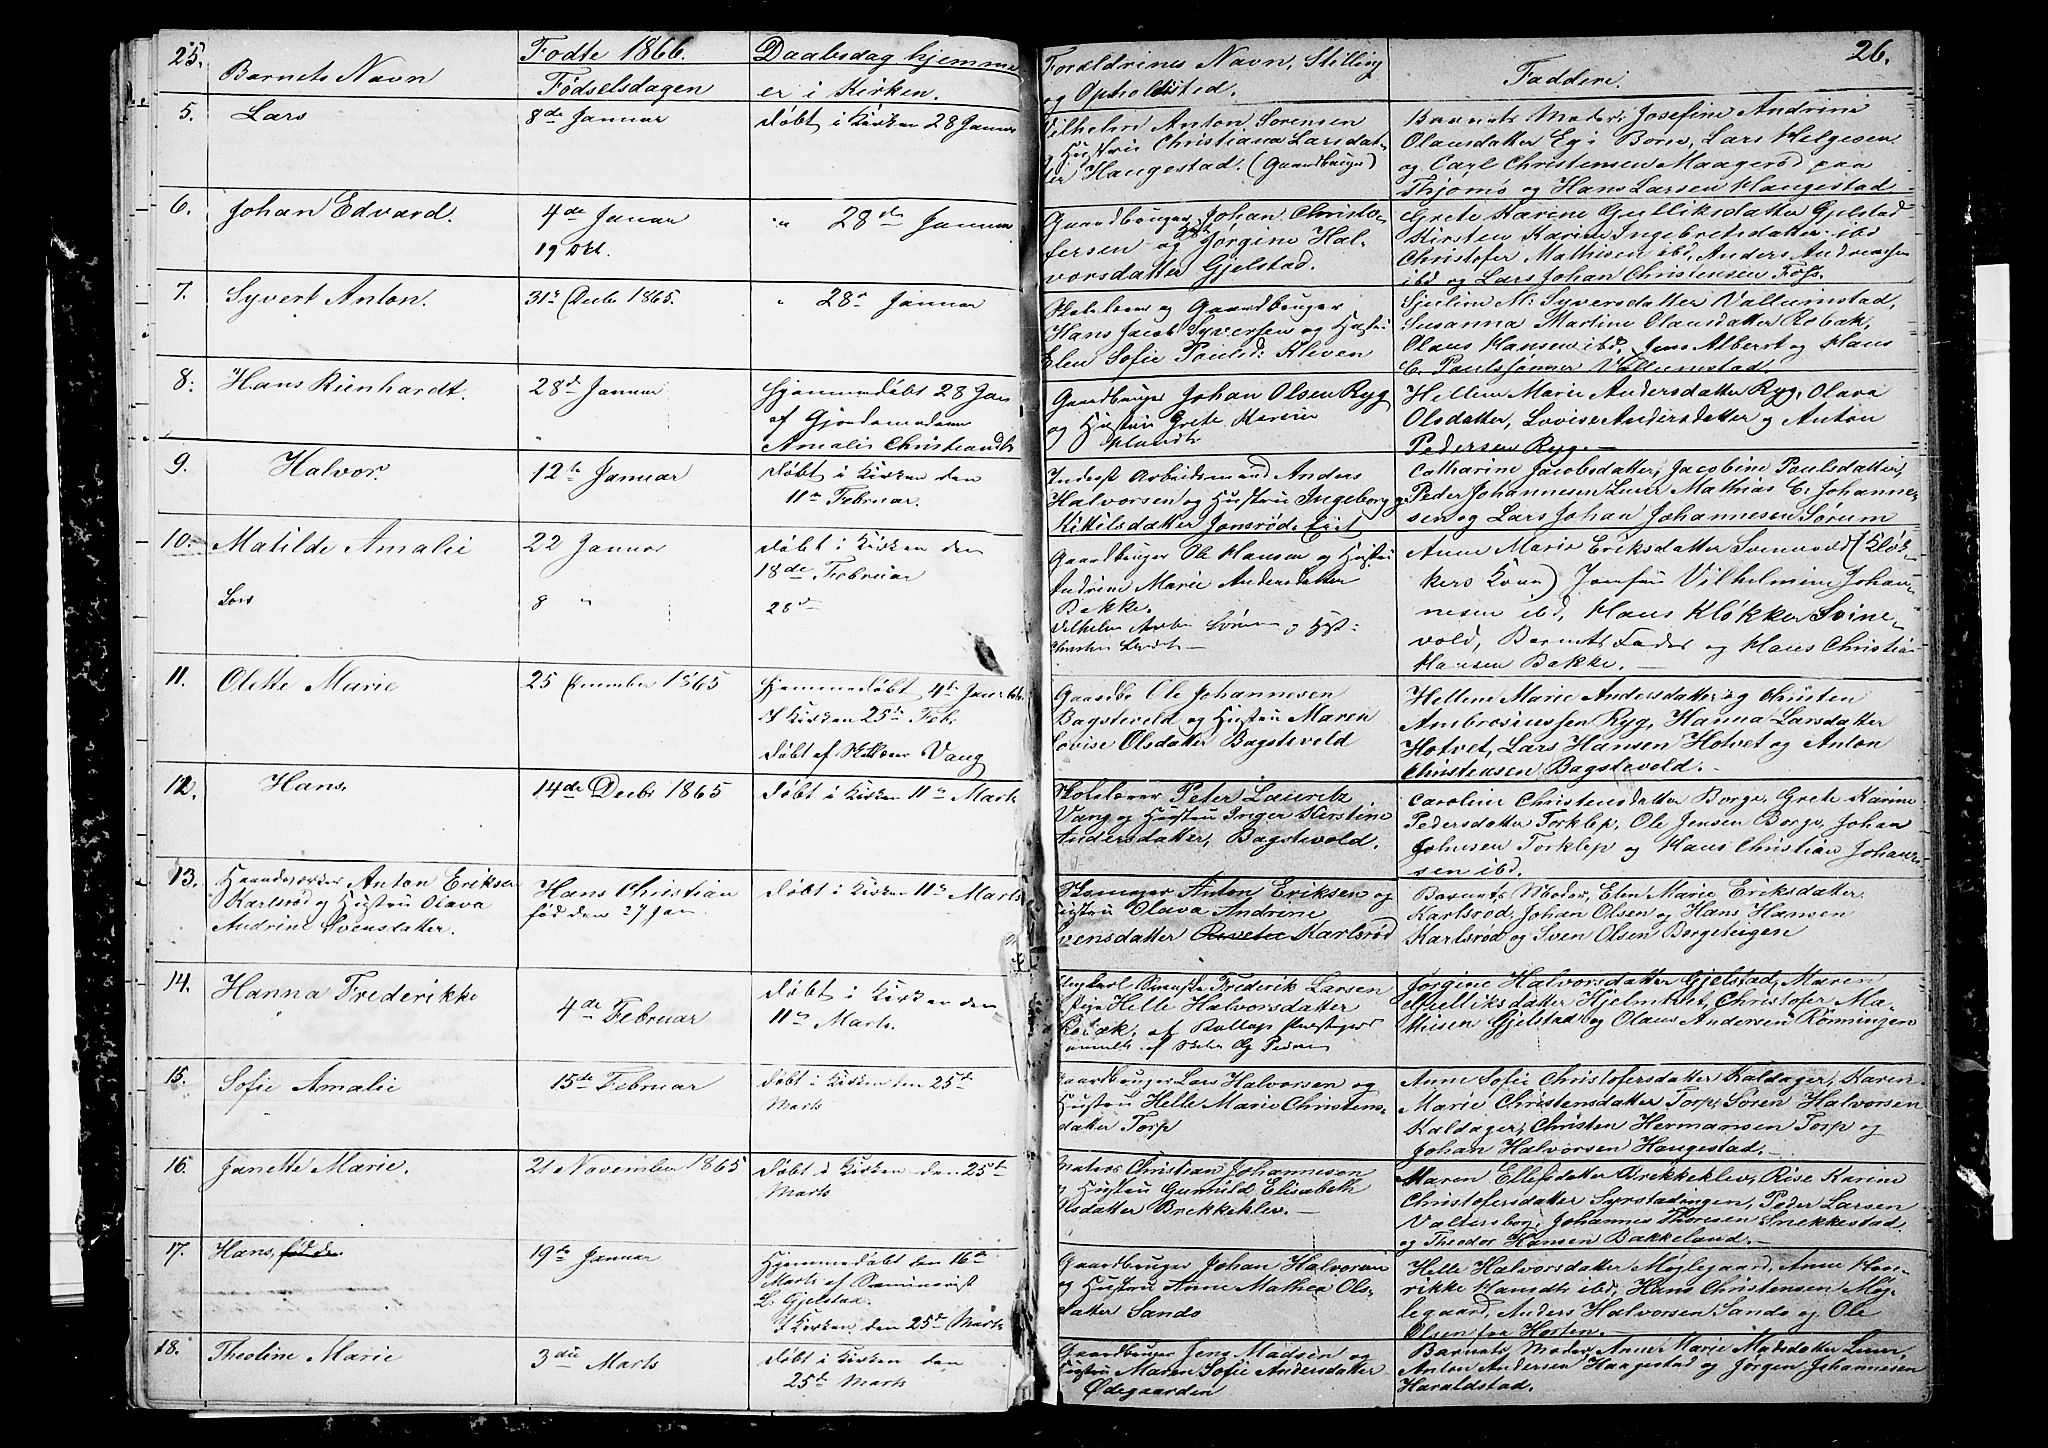 25.
Barnets Navn
Fødte 1866.
Fødselsdagen
Daabsdag hjemme
er i Kirken.
5.
Lars
8de Januar
døbt i Kirken 28 Januar
6.
Johan Edvard.
4de Januar
19 Okt.
" 28de Januar
7.
Syvert Anton.
31te Decbr 1865.
" 28de Januar
8.
Hans Rienhardt.
28de Januar
Hjemmedøbt 28 Jan
af Gjordemoderen
Amalie
9.
Halvor.
12te Januar
Døbt i Kirken den
11te Februar.
10.
Matilde Amalie
22 Januar
døbt i Kirken den
18de Februar
Lars
8 "
28de
11.
Olette Marie
25 December 1865
Hjemmedøbt 4de Januar
I Kirken 25de Febr.
Døbt af Skolelærer Vang
12.
Hans.
14de Decbr 1865
døbt i Kirken 11te Marts
13.
Haandværker Anton Eriksen
Karlsrød og Hustru Olava
Andrine Svensdatter.
Hans Christian
fød den 27 Jan
døbt i Kirken 11te Marts
14.
Hanna Frederikke
4de Februar
døbt i Kirken den
11te Marts.
15.
Sofie Amalie
15de Februar
døbt i Kirken den 25de
Marts
16.
Janette Marie.
21 November 1865
døbt i Kirken den 25de
Marts
17.
Hans, fød den
19de Januar
Hjemmedøbt den 16de
Marts af Seminarist
L. Gjelstad.
I Kirken den 25de Marts
18.
Theoline Marie
3die Marts
døbt i Kirken den
25de Marts
26.
Forældrenes Navn, Stilling
og Opholdssted.
Faddere.
Vilhelm Anton Sørensen
og Hustru Christiana Larsdat-
ter Haugestad. (Gaardbruger)
Barnets Moder, Josefine Andrine
Olausdatter Eg i Borre, Lars Helgesen
og Carl Christensen Maagerød paa
Thjømø og Hans Larsen Haugestad
Gaardbruger Johan Christo-
fersen og Hust Jørgine Hal-
vorsdatter Gjelstad.
Grete Karine Gulliksdatter Gjelstad
Kirsten Karine Ingebretsdatter ibd
Christofer Mathisen ibd, Anders Andreassen
ibd og Lars Johan Christensen Foss.
Skolelærer og Gaardbruger
Hans Jacob Syversen og Hustru
Elen Sofie Paulsd: Kleven
M: Syversdatter Vallumstad,
Susanna Martine Olausdatter Robak,
Olaus Hansen ibd, Jens Albert og Hans
C. Paulssønner Vallumstad.
Gaardbruger Johan Olsen Ryg
og Hustru Grete Karine
Hellene Marie Andersdatter Ryg, Olava
Olsdatter, Lovise Andersdatter og Anton
Pedersen Ryg.
Inderst Arbeidsmand Anders
Halvorsen og Hustru Ingeborg
Kittilsdatter Jonsrød Eiet
Catharine Jacobsdatter, Jacobine Paulsdatter,
Peder Johannesen Mathias C. Johanne-
sen og Lars Johan Johannesen Sørum
Gaardbruger Ole Hansen og Hustru
Andrine Marie Andersdatter
Bakke.
Vilhelm Anton Sørensen og Hust:
Anne Marie Eriksdatter Svinevold (Klok-
kers Kone) Jomfru Vilhelmine Johan-
nesen ibd, Hans Kløkker Svine-
vold, Barnets Fader og Hans Christian
Hansen Bakke.
Gaardbr Ole Johannesen
Bagstevold og Hustru Maren
Lovise Olsdatter Bagstevold
Hellene Marie Andersdatter og Christen
Ambrosiussen Ryg, Hanna Larsdatter
Hotvet, Lars Hansen Hotvet og Anton
Christensen Bagstevold.
Skolelærer Peter Lauritz
Vang og Hustru Inger Kirstine
Andersdatter, Bagstevold.
Caroline Christensdatter Borge, Grete Karine
Pedersdatter Torklep, Ole Jensen Borge, Johan
Johnsen Torklep og Hans Christian Johan-
sen ibd.
Anton Eriksen og
Hustru Olava Andrine
Svensdatter Karlsrød
Barnets Moder, Elen Marie Eriksdatter
Karlsrød, Johan Olsen og Hans Hansen
Karlsrød og Sven Olsen Borgeteigen
Frederik Larsen
Pige Helle Halvorsdatter
Jørgine Halvorsdatter Gjelstad, Maren
Gulliksdatter Hjelmtvet, Christofer Ma-
thisen Gjelstad og Olaus Andersen Rønningen
Gaardbruger Lars Halvorsen og
Hustru Helle Marie Christens-
datter Torp
Anne Sofie Christofersdatter Kaldager, Karen
Marie Christensdatter Torp, Søren Halvorsen
Kaldager, Christen Hermansen Torp og
Johan Halvorsen Haugestad.
Matros Christian Johannesen
og Hustru Gunhild Elisabeth
Olsdatter Brekkeklev.
Maren Ellefsdatter Brekkeklev, Rise Karine
Christofersdatter Syrstadengen, Peder Larsen
Valtersborg, Johannes Thoresen Snekkestad
og Theodor Hansen Bakkeland.
Gaardbruger Johan Halvorsen
og Hustru Anne Mathea Ols-
datter Sando
Helle Halvorsdatter Møjlegaard, Anne Hen-
rikke ibd, Hans Christensen Møj-
legaard, Anders Halvorsen Sando og Ole
Olsen fra Horten.
Gaardbruger Jens Madsen og
Hustru Maren Sofie Andersdatter
Ødegaarden
Barnets Moder, Anne Marie Madsdatter
Anton Andersen Haugestad og Jørgen Johannesen
Haraldstad.